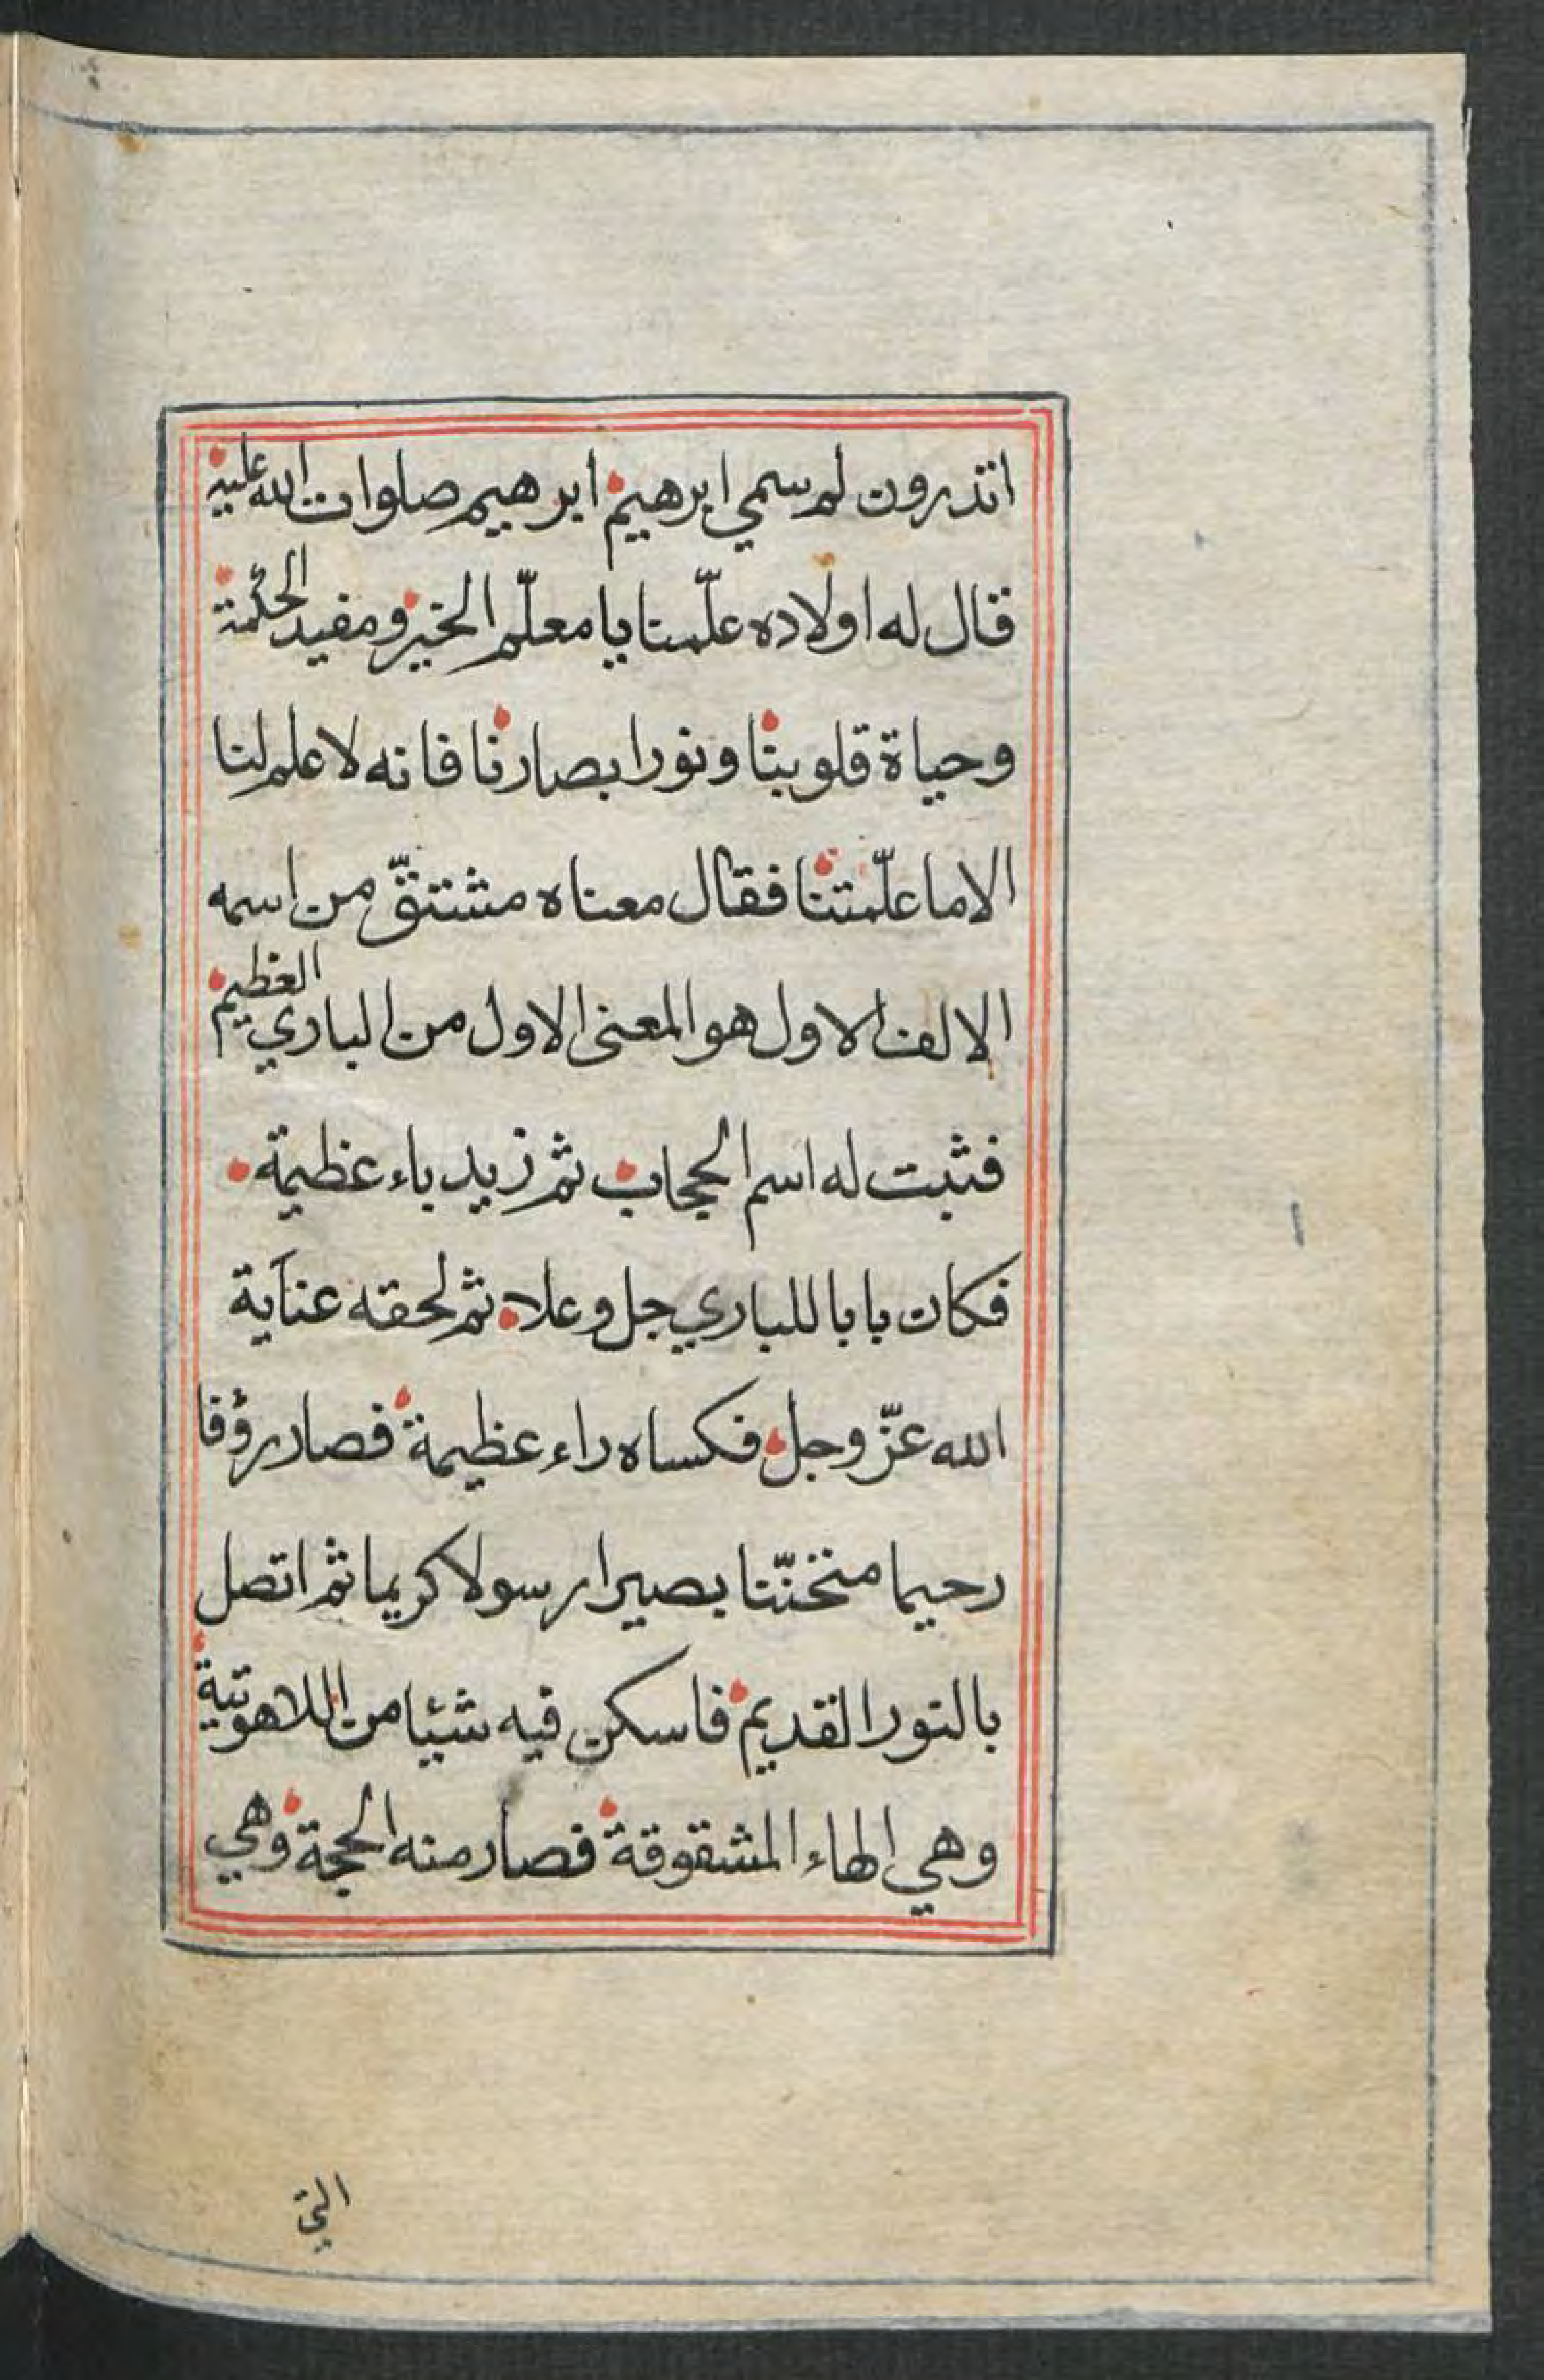 اتدرون لم سمي ابرهيم ابرهيم صلوات الله عليه
قال له اولاده علّمنا يا معلّم الخير ومفيد الحكمة
وحياة قلوبنا ونور ابصارنا فانه لا علم لنا
الا ما علّمتنا فقال معناه مشتقّ من اسمه
الالف الاول هو المعنى الاول من الباري العظيم
فثبت له اسم الحجاب ثم زيد باء عظيمة
فكان بابا للباري جل وعلا ثم لحقه عناية
الله عزّ وجل فكساه راء عظيمة فصار رؤفا
رحيما متحنّنا بصيرا رسولا كريما ثم اتصل
بالنور القديم فاسكن فيه شيئا من اللاهوتية
وهي الهاء المشقوقة فصار منه الحجة وهي
التي